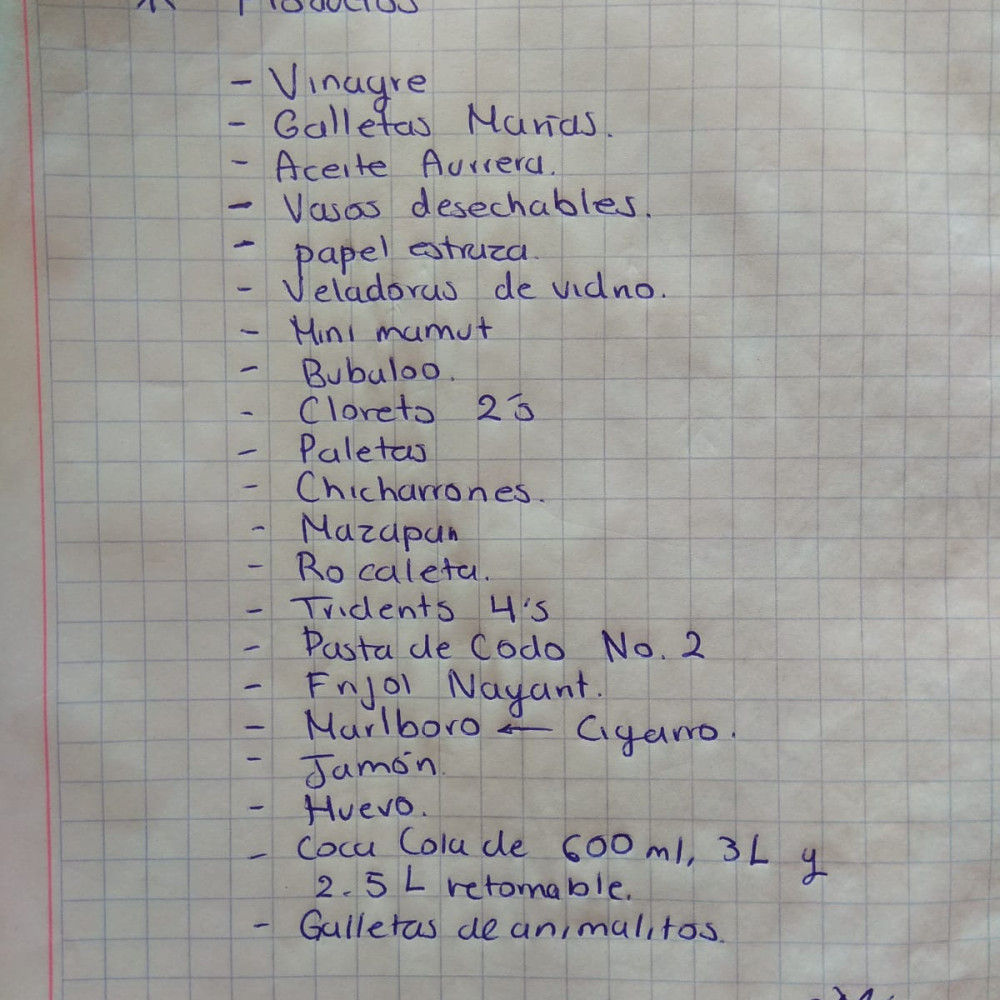 Productos
- Vinagre
- Galletas Marías.
- Aceite Aurrera.
- Vasos desechables.
- papel estraza.
- Veladoras de vidrio.
- Mini mamut
- Bubaloo.
- Clorets 2's
- Paletas
- Chicharrones.
- Mazapan
- Rocaleta.
- Tridents 4's
- Pasta de Codo No. 2
- Frijol Nayarit.
- Marlboro ← Cigarro.
- Jamón.
- Huevo.
- Coca Cola de 600 ml, 3L y
2.5 L retornable.
- Galletas de animalitos.